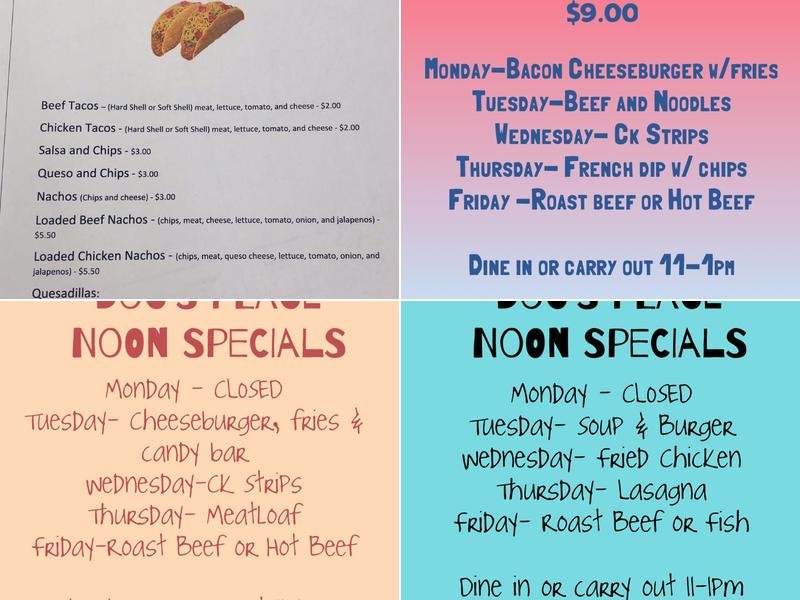 Beef Tacos – (Hard Shell or Soft Shell) meat, lettuce, tomato, and cheese - $2.00
Chicken Tacos - (Hard Shell or Soft Shell) meat, lettuce, tomato, and cheese - $2.00
Salsa and Chips - $3.00
Queso and Chips - $3.00
Nachos (Chips and cheese) - $3.00
Loaded Beef Nachos - (chips, meat, cheese, lettuce, tomato, onion, and jalapenos) -
$5.50
Loaded Chicken Nachos - (chips, meat, queso cheese, lettuce, tomato, onion, and
jalapenos) - $5.50
Quesadillas:
$9.00
Monday–Bacon Cheeseburger w/fries
Tuesday–Beef and Noodles
Wednesday– Ck Strips
Thursday– French dip w/ chips
Friday –Roast beef or Hot Beef
Dine in or carry out 11–1pm
NOON SPECIALS
Monday - CLOSED
Tuesday- Cheeseburger, fries &
candy bar
Wednesday-Ck Strips
Thursday- Meatloaf
Friday-Roast Beef or Hot Beef
NOON SPECIALS
Monday - CLOSED
Tuesday- Soup & Burger
Wednesday- Fried Chicken
Thursday- Lasagna
Friday- Roast Beef or Fish
Dine in or carry out 11-1pm